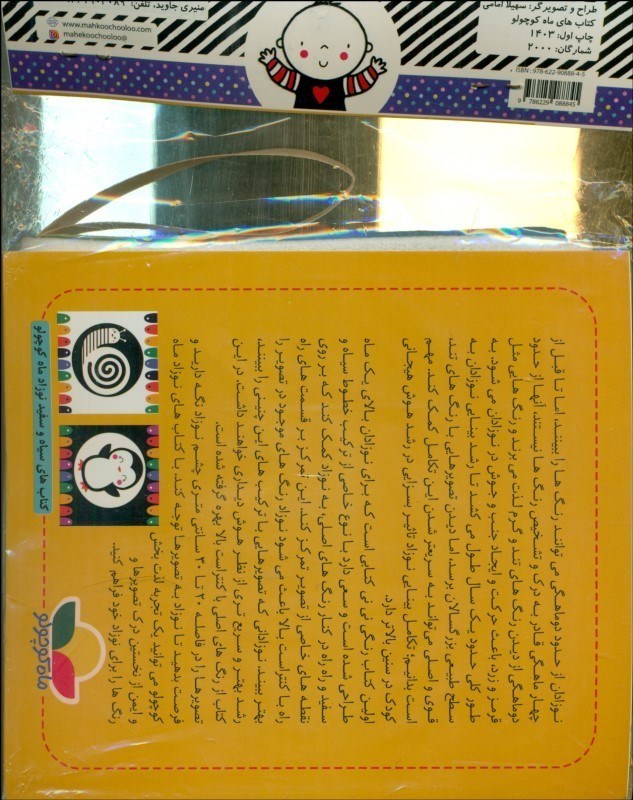 طراح و تصویرگر: سهیلا امامی
کتاب های ماه کوچولو
چاپ اول: ۱۴۰۳
شمارگان: ۲۰۰۰
ISBN : 978-622-90888-4-5
9 786229 088845
منیری جاوید، تلفن:
www.mahkoochooloo.com
mahekoochooloo@
نوزادان از حدود دوماهگی می توانند رنگ ها را ببینند، اما تا قبل از
چهار ماهگی قادر به درک و تشخیص رنگ ها نیستند. آنها از حدود
دوماهگی از دیدن رنگ های تند و گرم لذت می برند و رنگ هایی مثل
قرمز و زرد، باعث حرکت و ایجاد جنب و جوش در نوزادان می شود. به
طور کلی حدود یک سال طول می کشد تا رشد بینایی نوزادان به
سطح طبیعی بزرگسالان برسد، اما دیدن تصویرهایی با رنگ های تند،
قوی و اصلی می‌تواند به سریعتر شدن این تکامل کمک کند. مهم
است بدانیم؛ تکامل بینایی نوزاد تاثیر بسزایی در رشد هوش هیجانی
کودک در سنین بالاتر دارد.
اولین کتاب رنگی نی نی کتابی است که برای نوزادان بالای یک ماه
طراحی شده است و سعی دارد با نوع خاصی از ترکیب خطوط سیاه و
سفید و راه راه در کنار رنگ های اصلی، به نوزاد کمک کند که بر روی
نقطه های خاصی از تصویر تمرکز کند. این تمرکز بر قسمت های راه
راه با کنتراست بالا باعث می شود نوزاد رنگ های موجود در تصویر را
بهتر ببیند. نوزادانی که تصویرهایی با ترکیب های این چنینی را ببینند،
رشد بهتر و سریع تری از نظر هوش دیداری خواهند داشت. در این
کتاب از رنگ های اصلی با کنتراست بالا بهره گرفته شده است.
تصویرها را در فاصله ۲۰ تا ۳۰ سانتی متری چشم نوزاد نگه دارید و
فرصت بدهید تا نوزاد به تصویرها توجه کند. با کتاب های نوزاد ماه
کوچولو می توانید یک تجربه لذت بخش
و ایمن از نخستین درک تصویرها و
رنگ ها را برای نوزاد خود فراهم کنید.
کتاب های سیاه و سفید نوزاد ماه کوچولو
ماه کوچولو